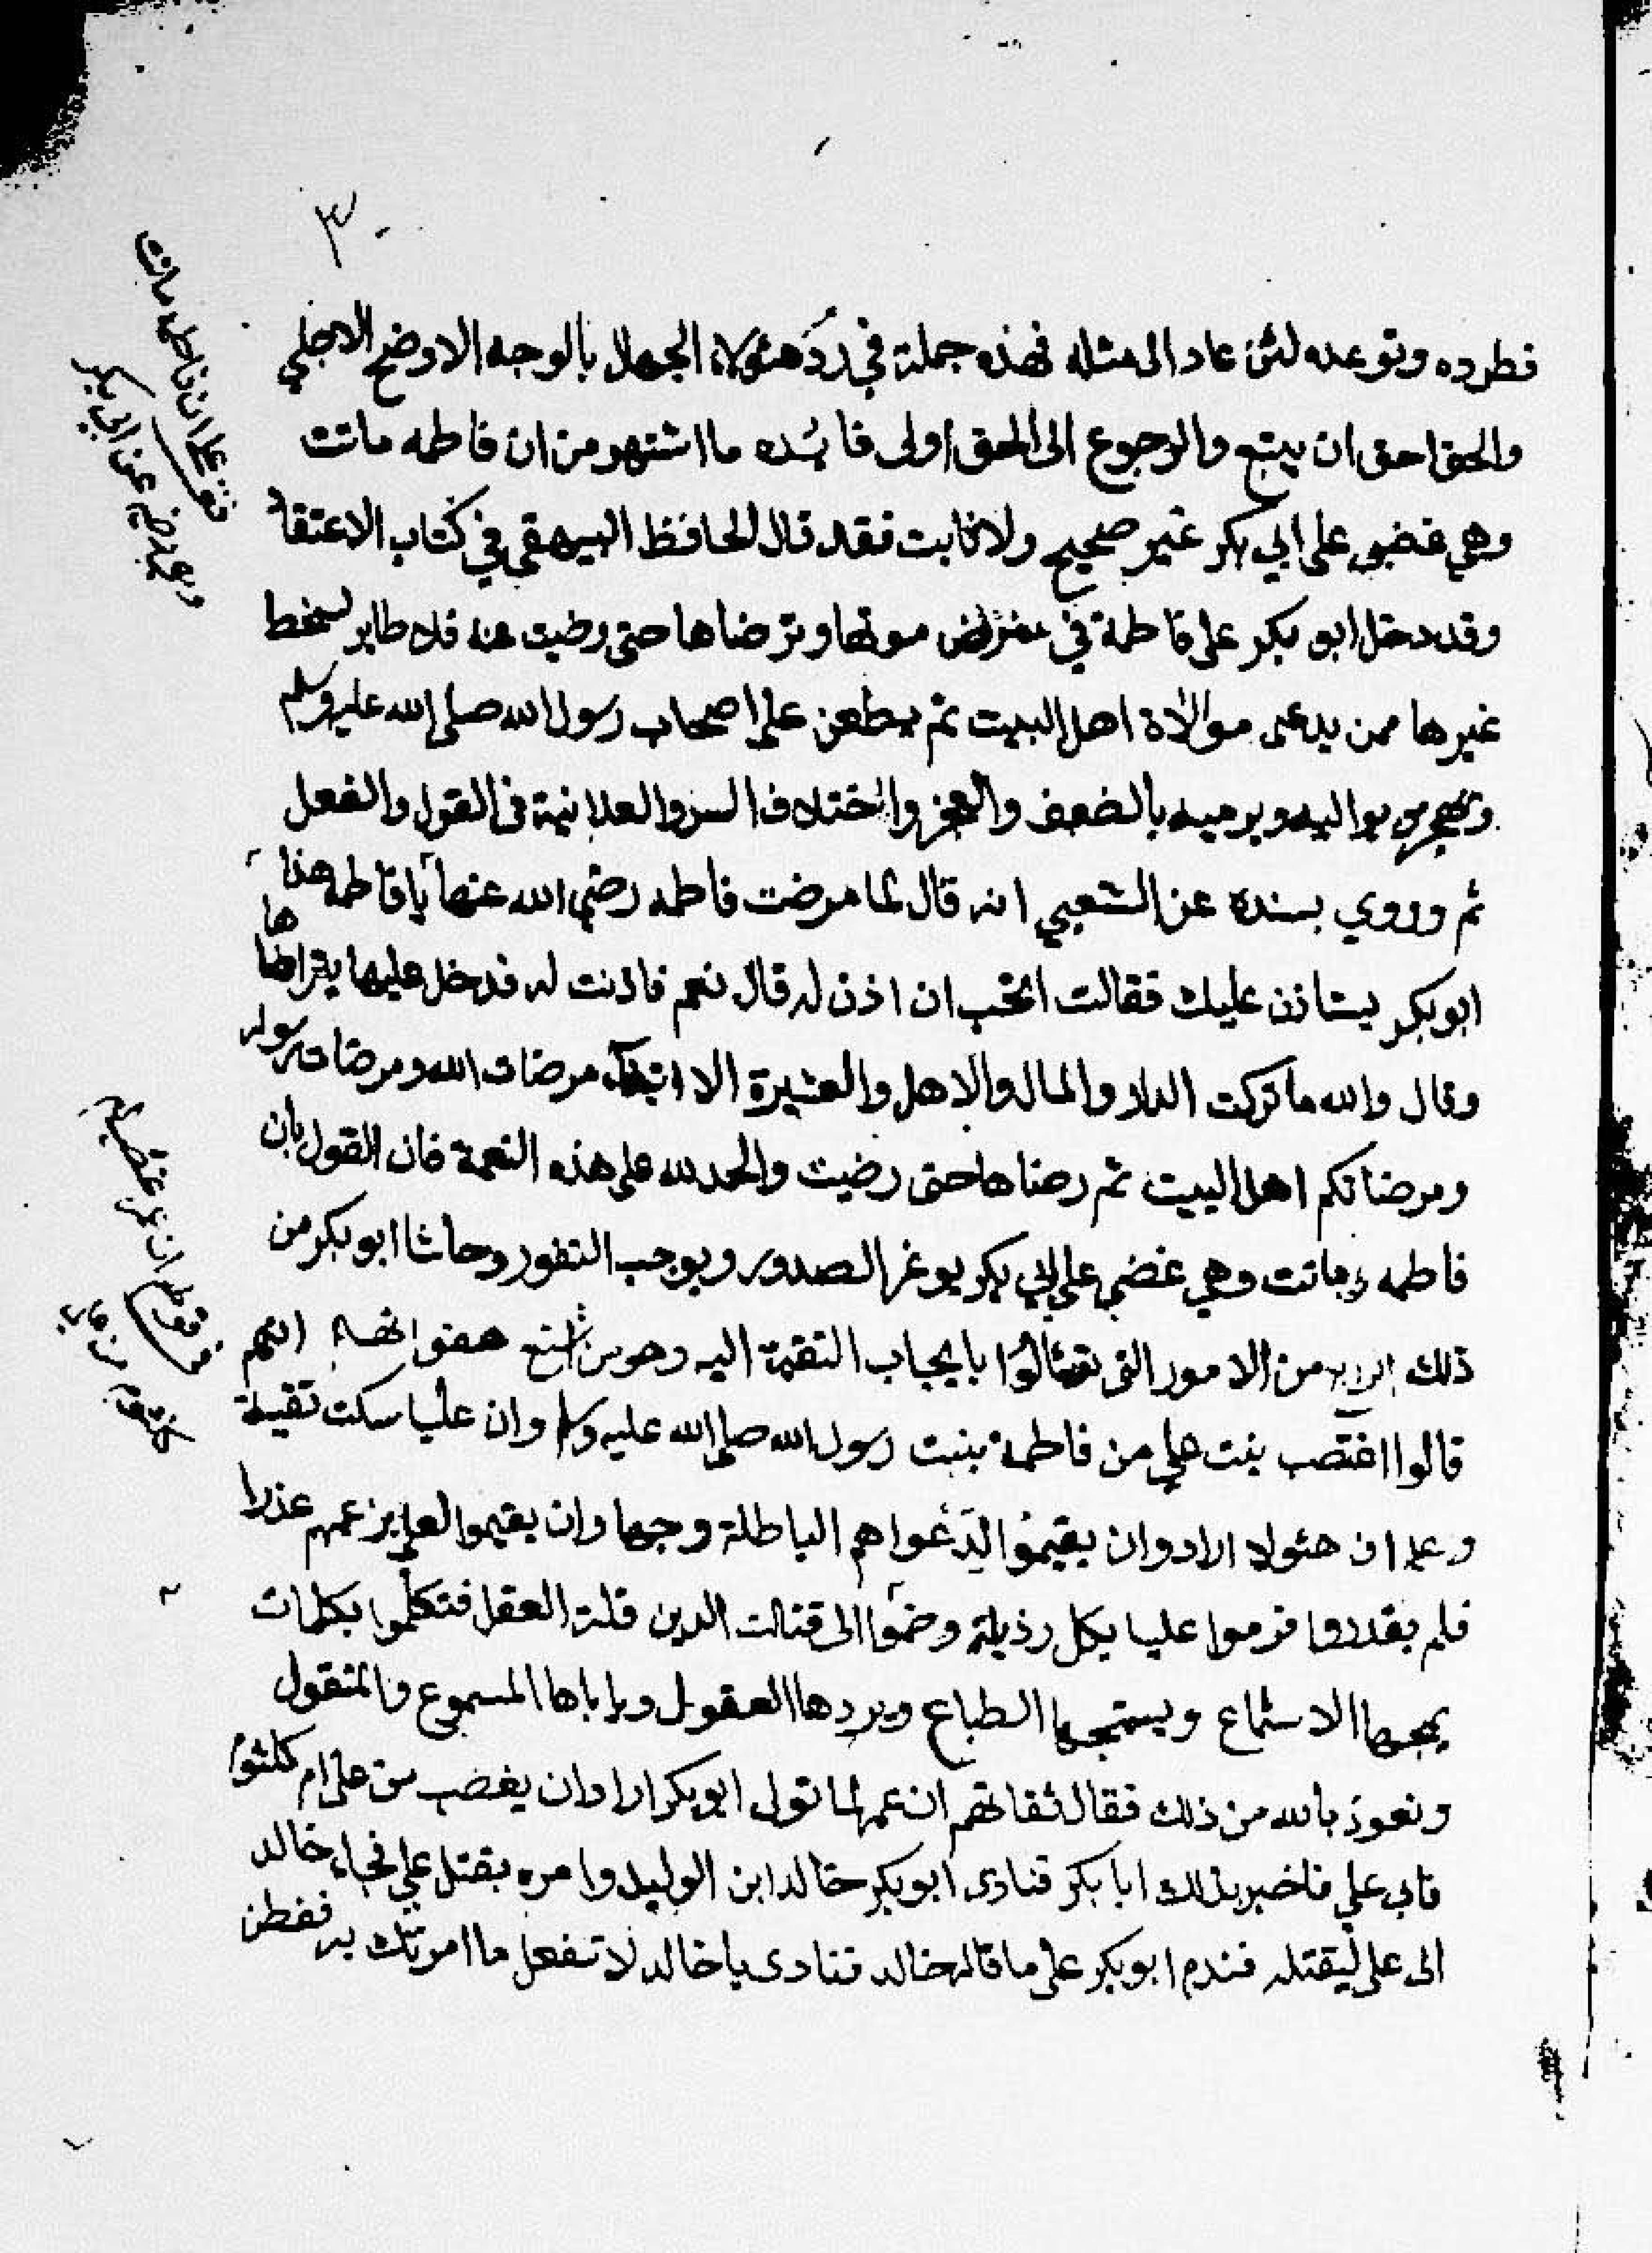 ٣٠
فطرده وتوعده لئن عاد الى مثله فهذه جملة في رد هئولاء الجهلا بالوجه الاوضح الاجلي
والحق احق ان يتبع والرجوع الى الحق اولى فايده ما اشتهر من ان فاطمه ماتت
وهي غضبى على ابي بكر غير صحيح ولا ثابت فقد قال الحافظ البيهقي في كتاب الاعتقاد
وقد دخل ابو بكر على فاطمة في مرض موتها وترضاها حتى رضيت عنه فلا طاير لسخط
غيرها ممن يدعى موالاة اهل البيت ثم يطعن على اصحاب رسول الله صلى الله عليه وسلم
ويهجر من يواليه ويرميه بالضعف والعجز واختلاف السر والعلانية فى القول والفعل
ثم وروي بسنده عن الشعبي انه قال لما مرضت فاطمه رضي الله عنها يا فاطمه هذا
ابو بكر يستاذن عليك فقالت اتحب ان اذن له قال نعم فاذنت له فدخل عليها يتراضاها
وقال والله ما تركت الدار والمال والاهل والعشيرة الا ابتغاء مرضات الله ومرضات رسوله
ومرضاتكم اهل البيت ثم رضاها حتى رضيت والحمد لله على هذه النعمة فان القول بان
فاطمه ماتت وهي غضبى على ابي بكر يوغر الصدور ويوجب النفور وحاشا ابو بكر من
ذلك من الامور التى تمالوا بايجاب النقمة اليه وهو من اشنع هفواتهم انهم
قالوا اغتصب بنت علي من فاطمة بنت رسول الله صلى الله عليه وسلم وان عليا سكت تقية
وعلم ان هئولا ارادوان يقيموا لدعواهم الباطلة وجها وان يقيموا لعلي بزعمهم عذرا
فلم يقدروا فرموا عليا بكل رذيلة وضموا الى قتالت الدين قلة العقل فتكلموا بكلمات
يمجها الاسماع ويستمجها الطباع ويردها العقول وياباها المسموع والمنقول
ونعوذ بالله من ذلك فقال ثقاتهم ان عمر لما تولى ابو بكر اراد ان يغصب من على ام كلثوم
فابى علي فاخبر بذلك ابا بكر فنادى ابو بكر خالد ابن الوليد وامره بقتل علي فجاء خالد
الى على ليقتله فندم ابو بكر على ما قاله خالد فنادى يا خالد لا تفعل ما امرتك به ففطن
ان فاطمه ماتت
عن ابي بكر
ان عمر غصب